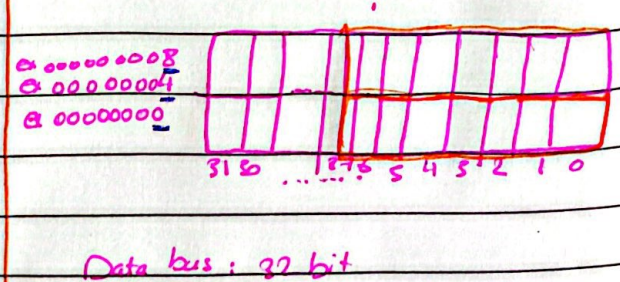 @ 000000008
@ 00000004
@ 00000000
31 30 ...... 8 7 6 5 4 3 2 1 0
Data bus : 32 bit